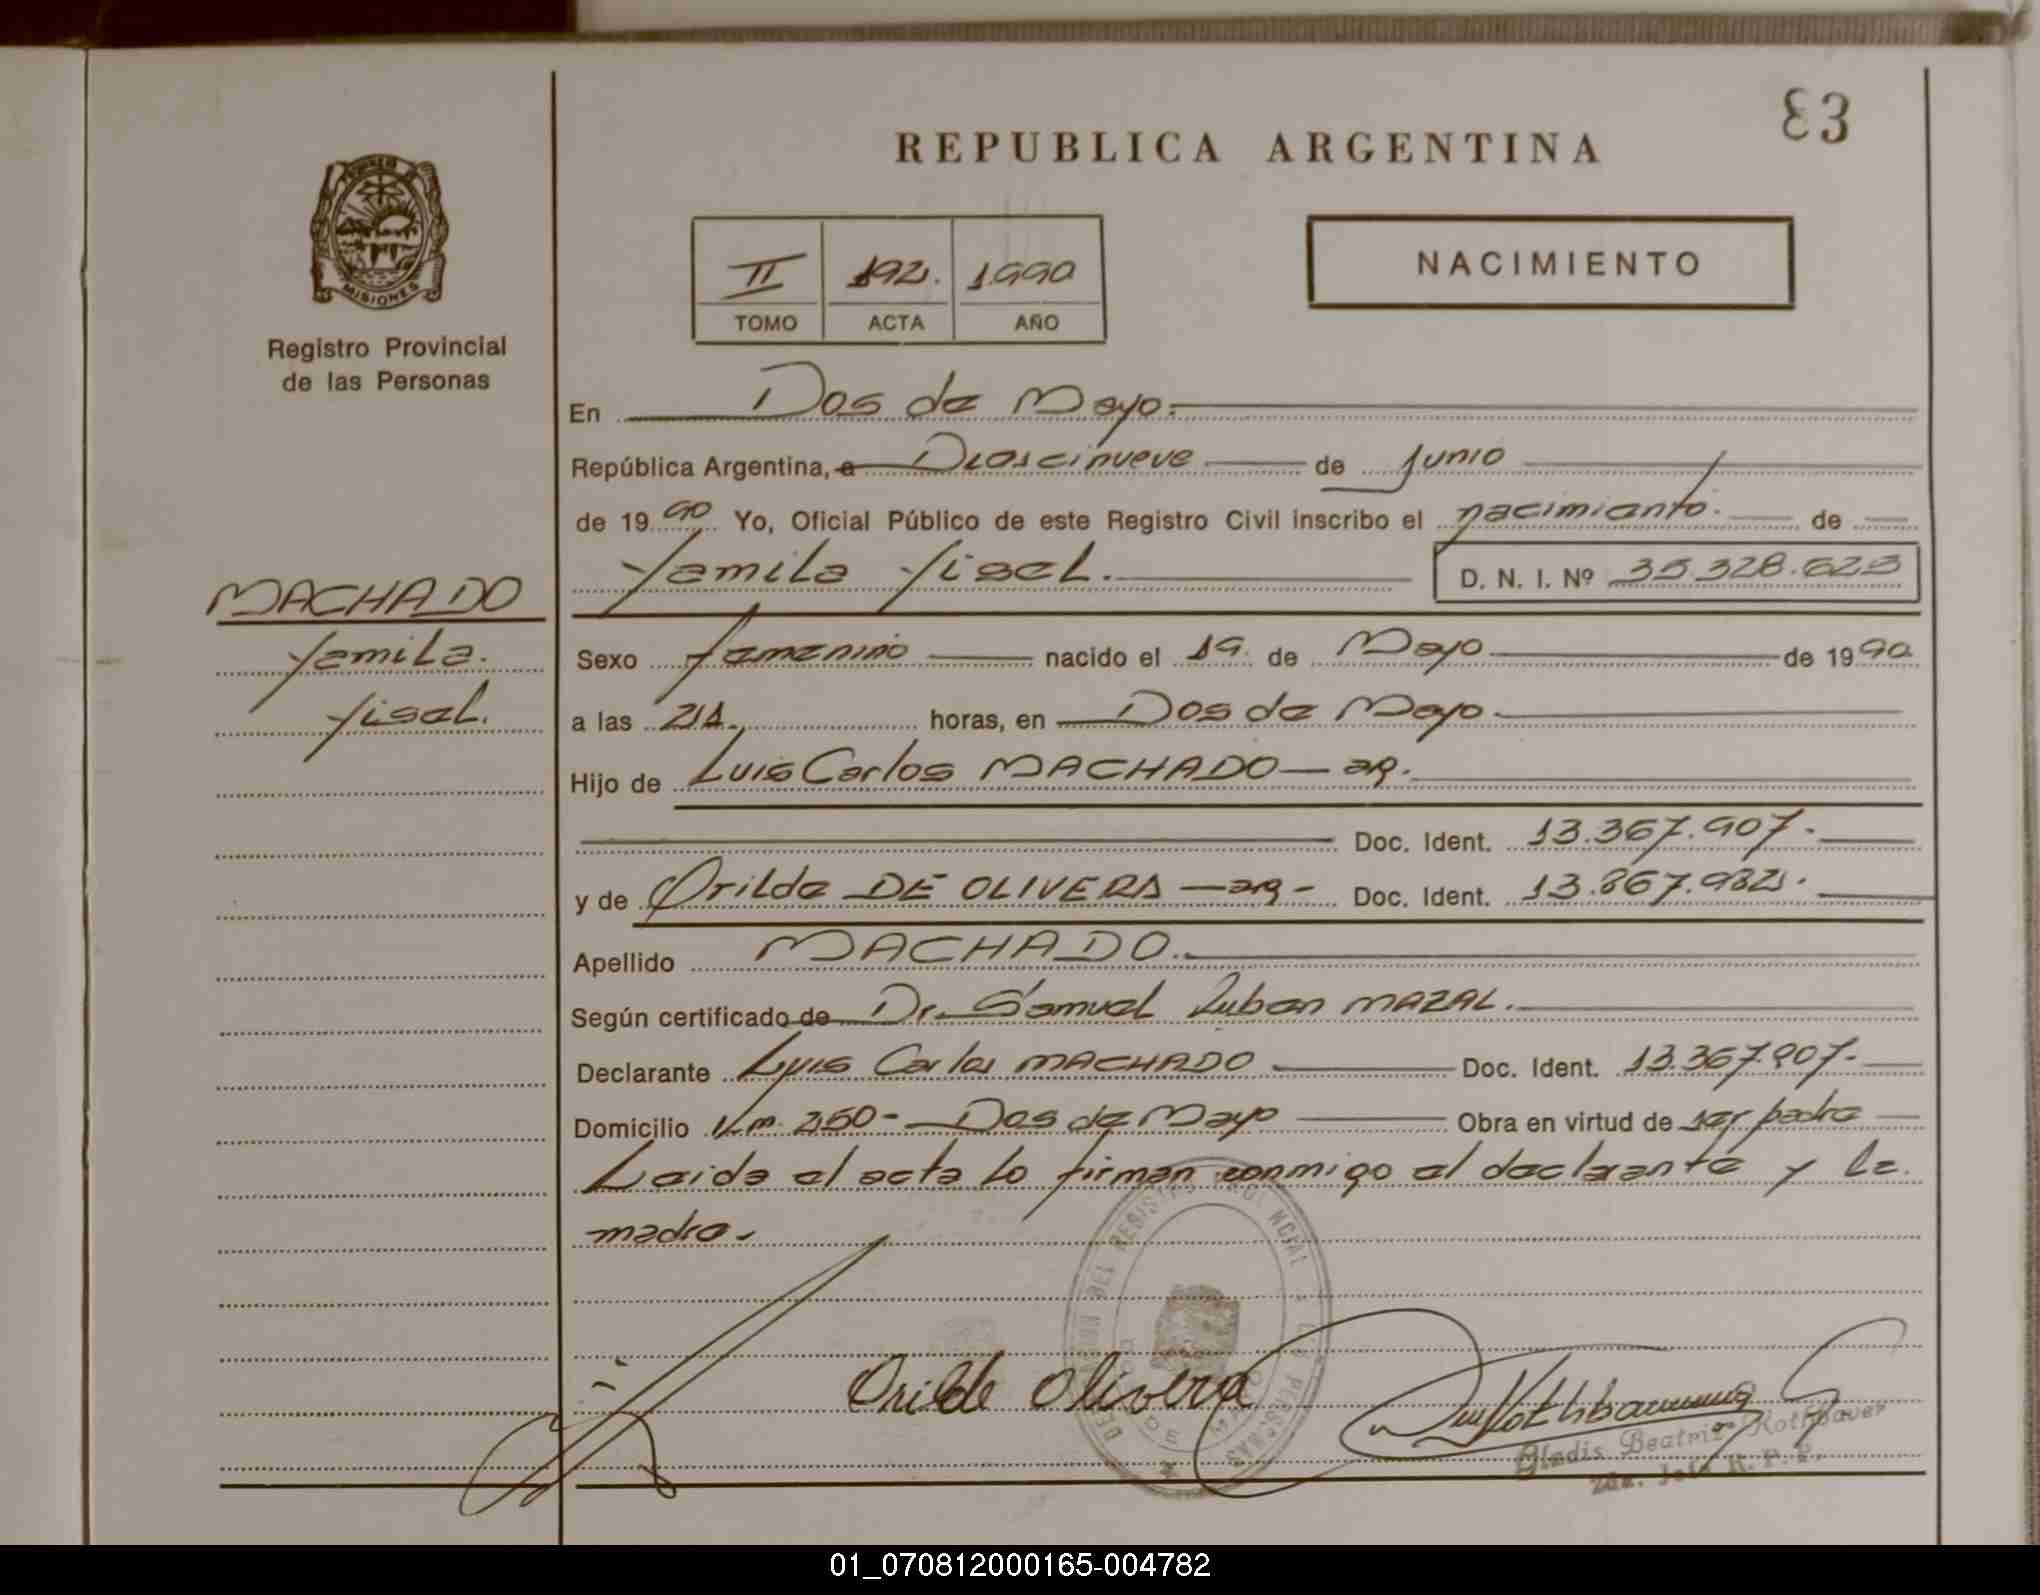 83
REPUBLICA ARGENTINA
NACIMIENTO
II 192. 1.990
TOMO ACTA AÑO
MISIONES
Registro Provincial
de las Personas
En Dos de Mayo.
República Argentina, a Diescinueve de Junio
de 1990 Yo, Oficial Público de este Registro Civil inscribo el nacimiento. de
Yamila Yisel. D. N. I. Nº 35.328.623
MACHADO
Yamila.
Yisel.
Sexo femenino nacido el 19. de Mayo de 1990
a las 21. horas, en Dos de Mayo
Hijo de Luis Carlos MACHADO — arg.
Doc. Ident. 13.367.907.-
y de Orilda DE OLIVERA — arg - Doc. Ident. 13.867.982.
Apellido MACHADO.
Según certificado de Dr. Samuel Ruben MAZAL.
Declarante Luis Carlos MACHADO Doc. Ident. 13.367.907.-
Domicilio Km. 250 - Dos de Mayo Obra en virtud de ser padre
Leida el acta lo firman conmigo el declarante y la.
madre.-
Orilde Olivera
Gladis Beatriz Rothbauer
R. P. P.
01_070812000165-004782